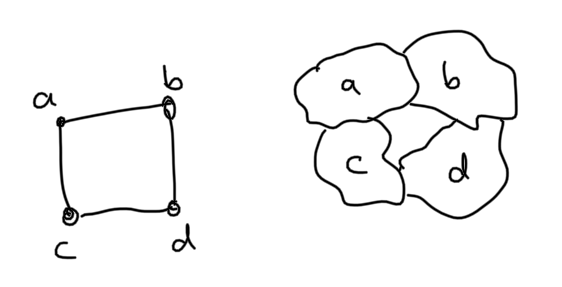 a b
c d
a b
c d